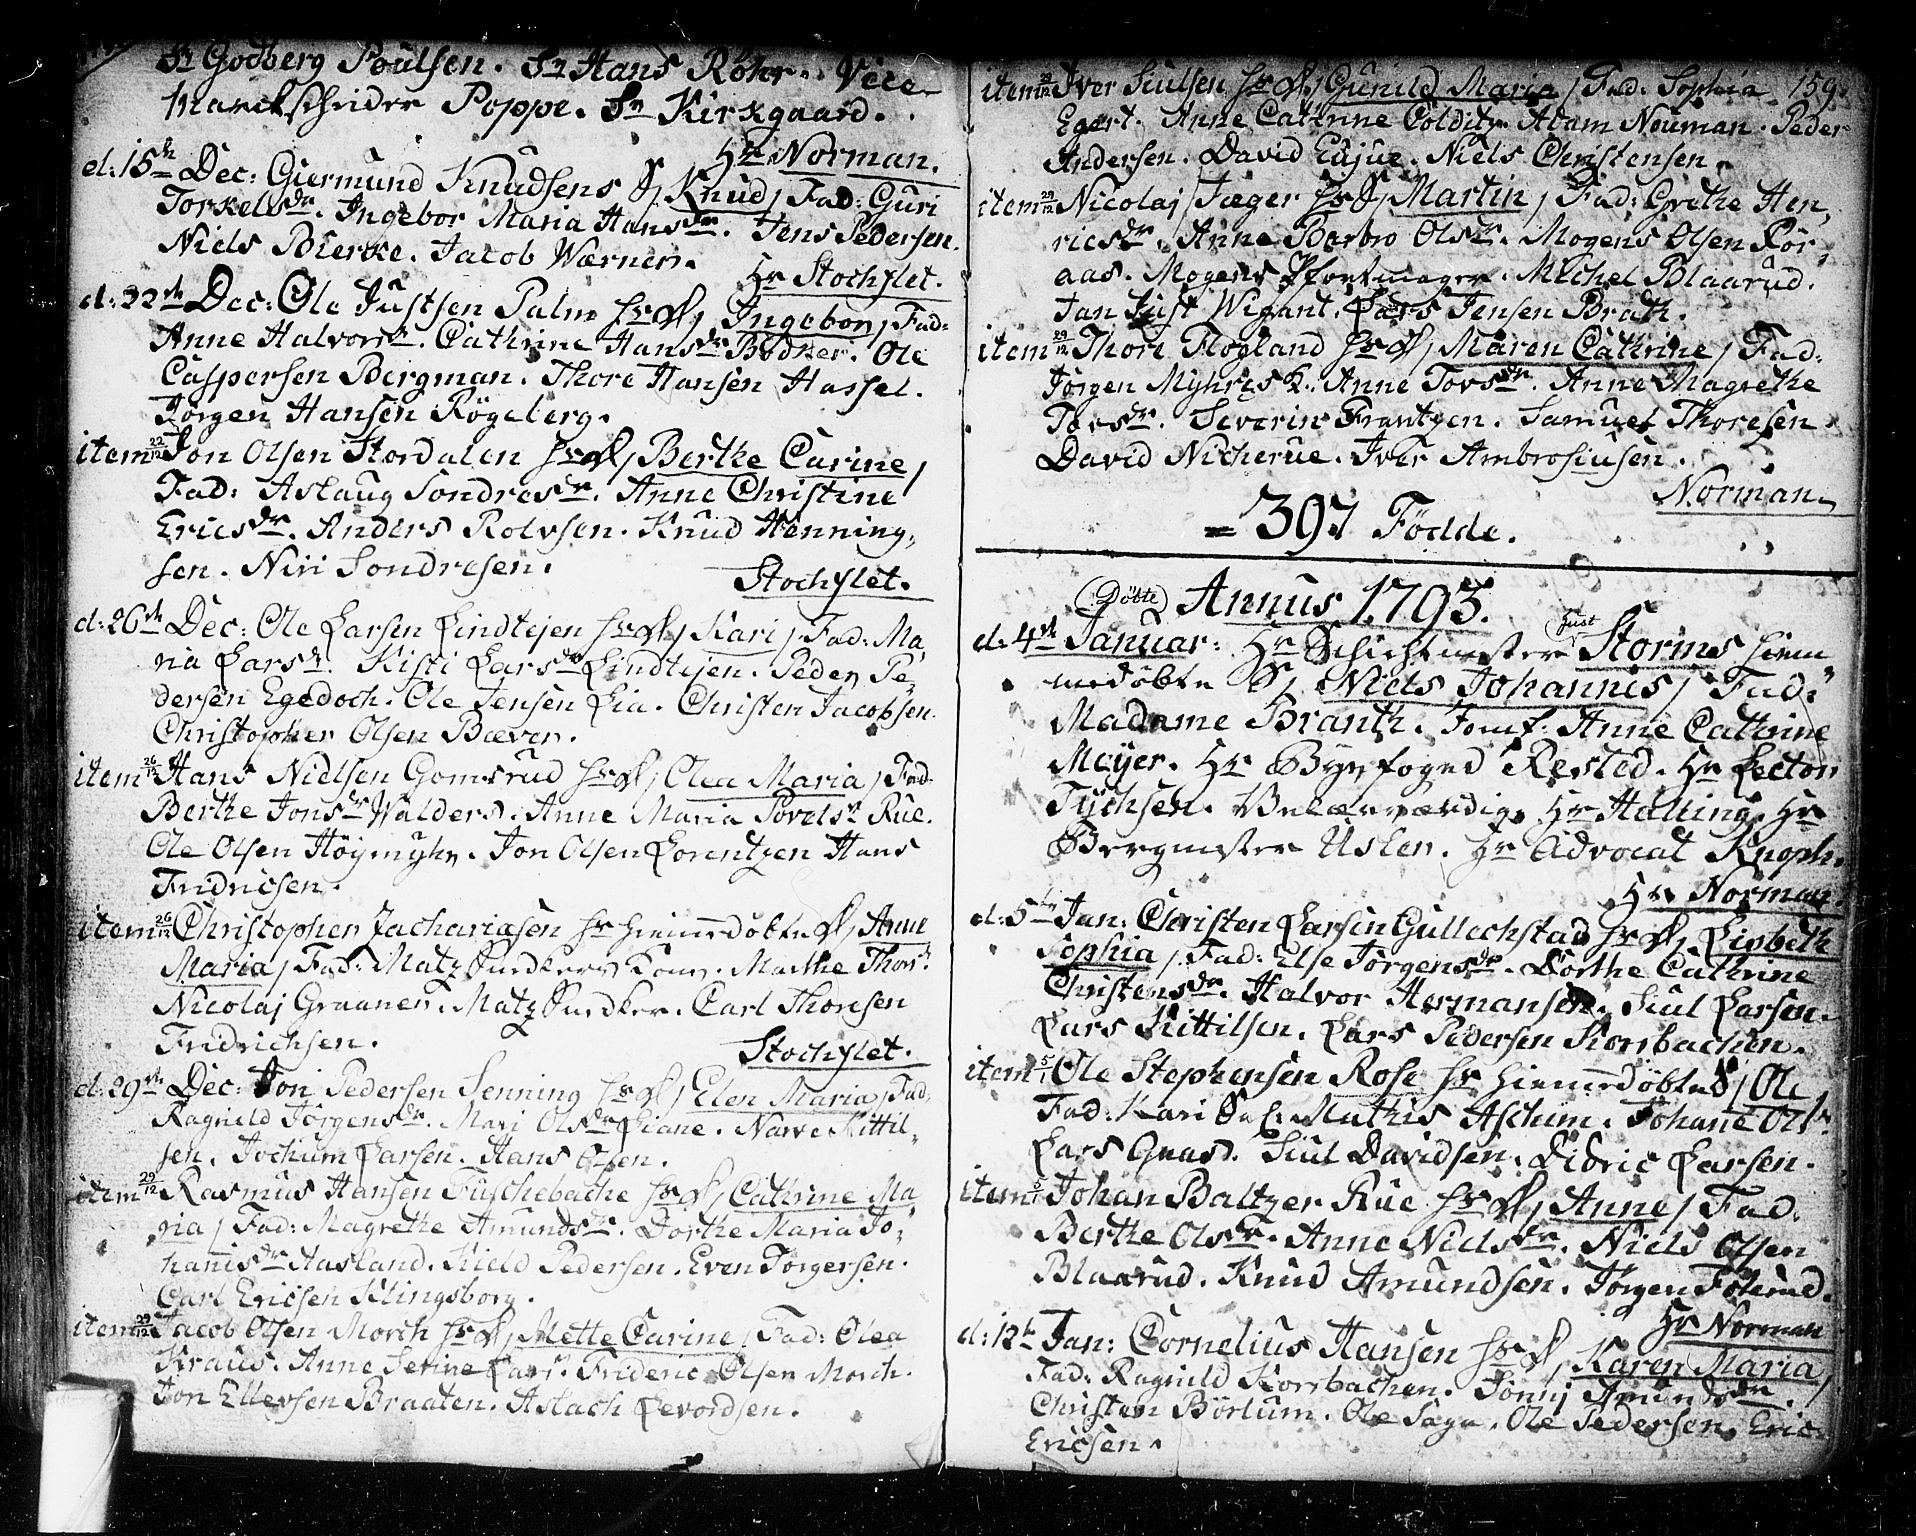 Sr Godberg Poulsen. Sr Hans Röhr. Vice
Marckscheider Poppe. Sr Kirkgaard.
Hr Norman.
d: 15de Dec: Giermund Knudsens S, Knud, Fad: Guri
Torkelsdr. Ingebor Maria Hansdr. Jens Pedersen.
Niels Bierke. Jacob Wærner.
Hr Stochflet.
d: 22de Dec: Ole Justsen Palm hs D, Ingebor, Fad:
Anne Halvorsdr. Cathrine Hansdr Bødker. Ole
Caspersen Bergman. Thore Hansen Hassel.
Jørgen Hansen Røgeberg.
item 22/12 Jon Olsen Stordalen hs D, Berthe Carine,
Fad: Aslaug Sondresdr. Anne Christine
Ericsdr. Anders Rolvsen. Knud Henning,
sen. Niri Sondresen.
Stochflet.
d: 26de Dec: Ole Larsen Lindtejen hs D, Kari, Fad: Ma,
ria Larsdr. Kisti Larsdr Lindtejen. Peder Pe,
dersen Egedoch. Ole Jensen Lia. Christen Jacobsen.
Christopher Olsen Bæver.
item 26/12 Hans Nielsen Gomsrud hs D, Olea Maria, Fad:
Berthe Jonsdr Walders. Anne Maria Povelsdr Rue.
Ole Olsen Höymyhr. Jon Olsen Lorentzen Hans
Fridricsen.
item 26/12 Christopher Zachariasen hs hiemmedøbte D, Anne
Maria, Fad: Matz Snedkers Kone. Marthe Thors.
Nicolaj Graaner. Matz Snedker. Carl Thoresen
Fridrichsen.
Stochflet.
d: 29de Dec: Jon Pedersen Senning hs D, Elen Maria, Fad:
Ragnild Jörgensdr. Mari Olsdr Liane. Narve Kittil,
sen. Jochum Larsen. Hans Olsen.
item 29/12 Rasmus Hansen Tuschebache hs D, Cathrine Ma,
ria, Fad: Magrethe Amundsdr. Dorthe Maria Jo,
hanisdr Aasland. Kield Pedersen. Even Torgersen.
Carl Ericsen Klingsborg.
item 29/12 Jacob Olsen Morch hs D, Mette Carine, Fad: Olea
Kraus. Anne Serine Larsdr. Frideric Olsen Morch.
Jon Ellevsen Braaten. Aslach Levordsen.
item 29/12 Iver Siulsen hs D, Gunild Maria, Fad: Sophia 159.
Egert. Anne Cathrine Colditz. Adam Neuman. Peder
Andersen. David Eujue. Niels Christensen.
item 29/12 Nicolaj Jæger hs S, Martin, Fad: Grethe Hen,
ricsdr. Anne Barbro Olsdr. Mogens Olsen Rør,
aas. Mogens Pfortmager. Michel Blaarud.
Jan Just Wigant. Lars Jensen Brath.
item 29/12 Thore Flogland hs D, Maren Cathrine, Fad:
Jørgen Myhres K. Anne Torsdr. Anne Magrethe
Torsdr. Severin Frantzen. Samuel Thoresen.
David Nicherue. Iver Ambrosiusen.
Norman.
= 397 Födde.
Döbte Annus 1793.
d: 4de Januar: Hr Schichtmester Just Storms hiem
medøbte S, Niels Johannes, Fad:
Madame Branth. Jomf: Anne Cathrine
Meyer. Hr Byefoged Rested. Hr Lector
Tychsen. Velærværdige Hr Halling. Hr
Bergmester Üsler. Hr Advocat Knoph.
Hr Norman.
d: 5te Jan: Christen Larsen Gullochstad hs D, Lisbeth
Sophia, Fad: Else Jörgensdr. Dorthe Cathrine
Christensdr. Halvor Hermansen. Siul Larsen.
Lars Kittilsen. Lars Pedersen Korsbachen.
item 5/1 Ole Stephensen Rose hs hiemmedøbte S, Ole
Fad: Kari Mathis Ascheim. Johane Olsdr.
Lars Gnas. Siul Davidsen. Didric Larsen.
item Johan Baltzer Rue hs D, Anne, Fad:
Berthe Olsdr. Anne Nielsdr. Niels Olsen
Blaarud. Knud Amundsen. Jörgen Folerud.
Hr Norman
d: 12te Jan: Cornelius Hansen hs D, Karen Maria,
Fad: Ragnild Korsbachen. Jönnj Amundsdr.
Christen Börlum. Ole Saga. Ole Pedersen. Eric
Ericsen.